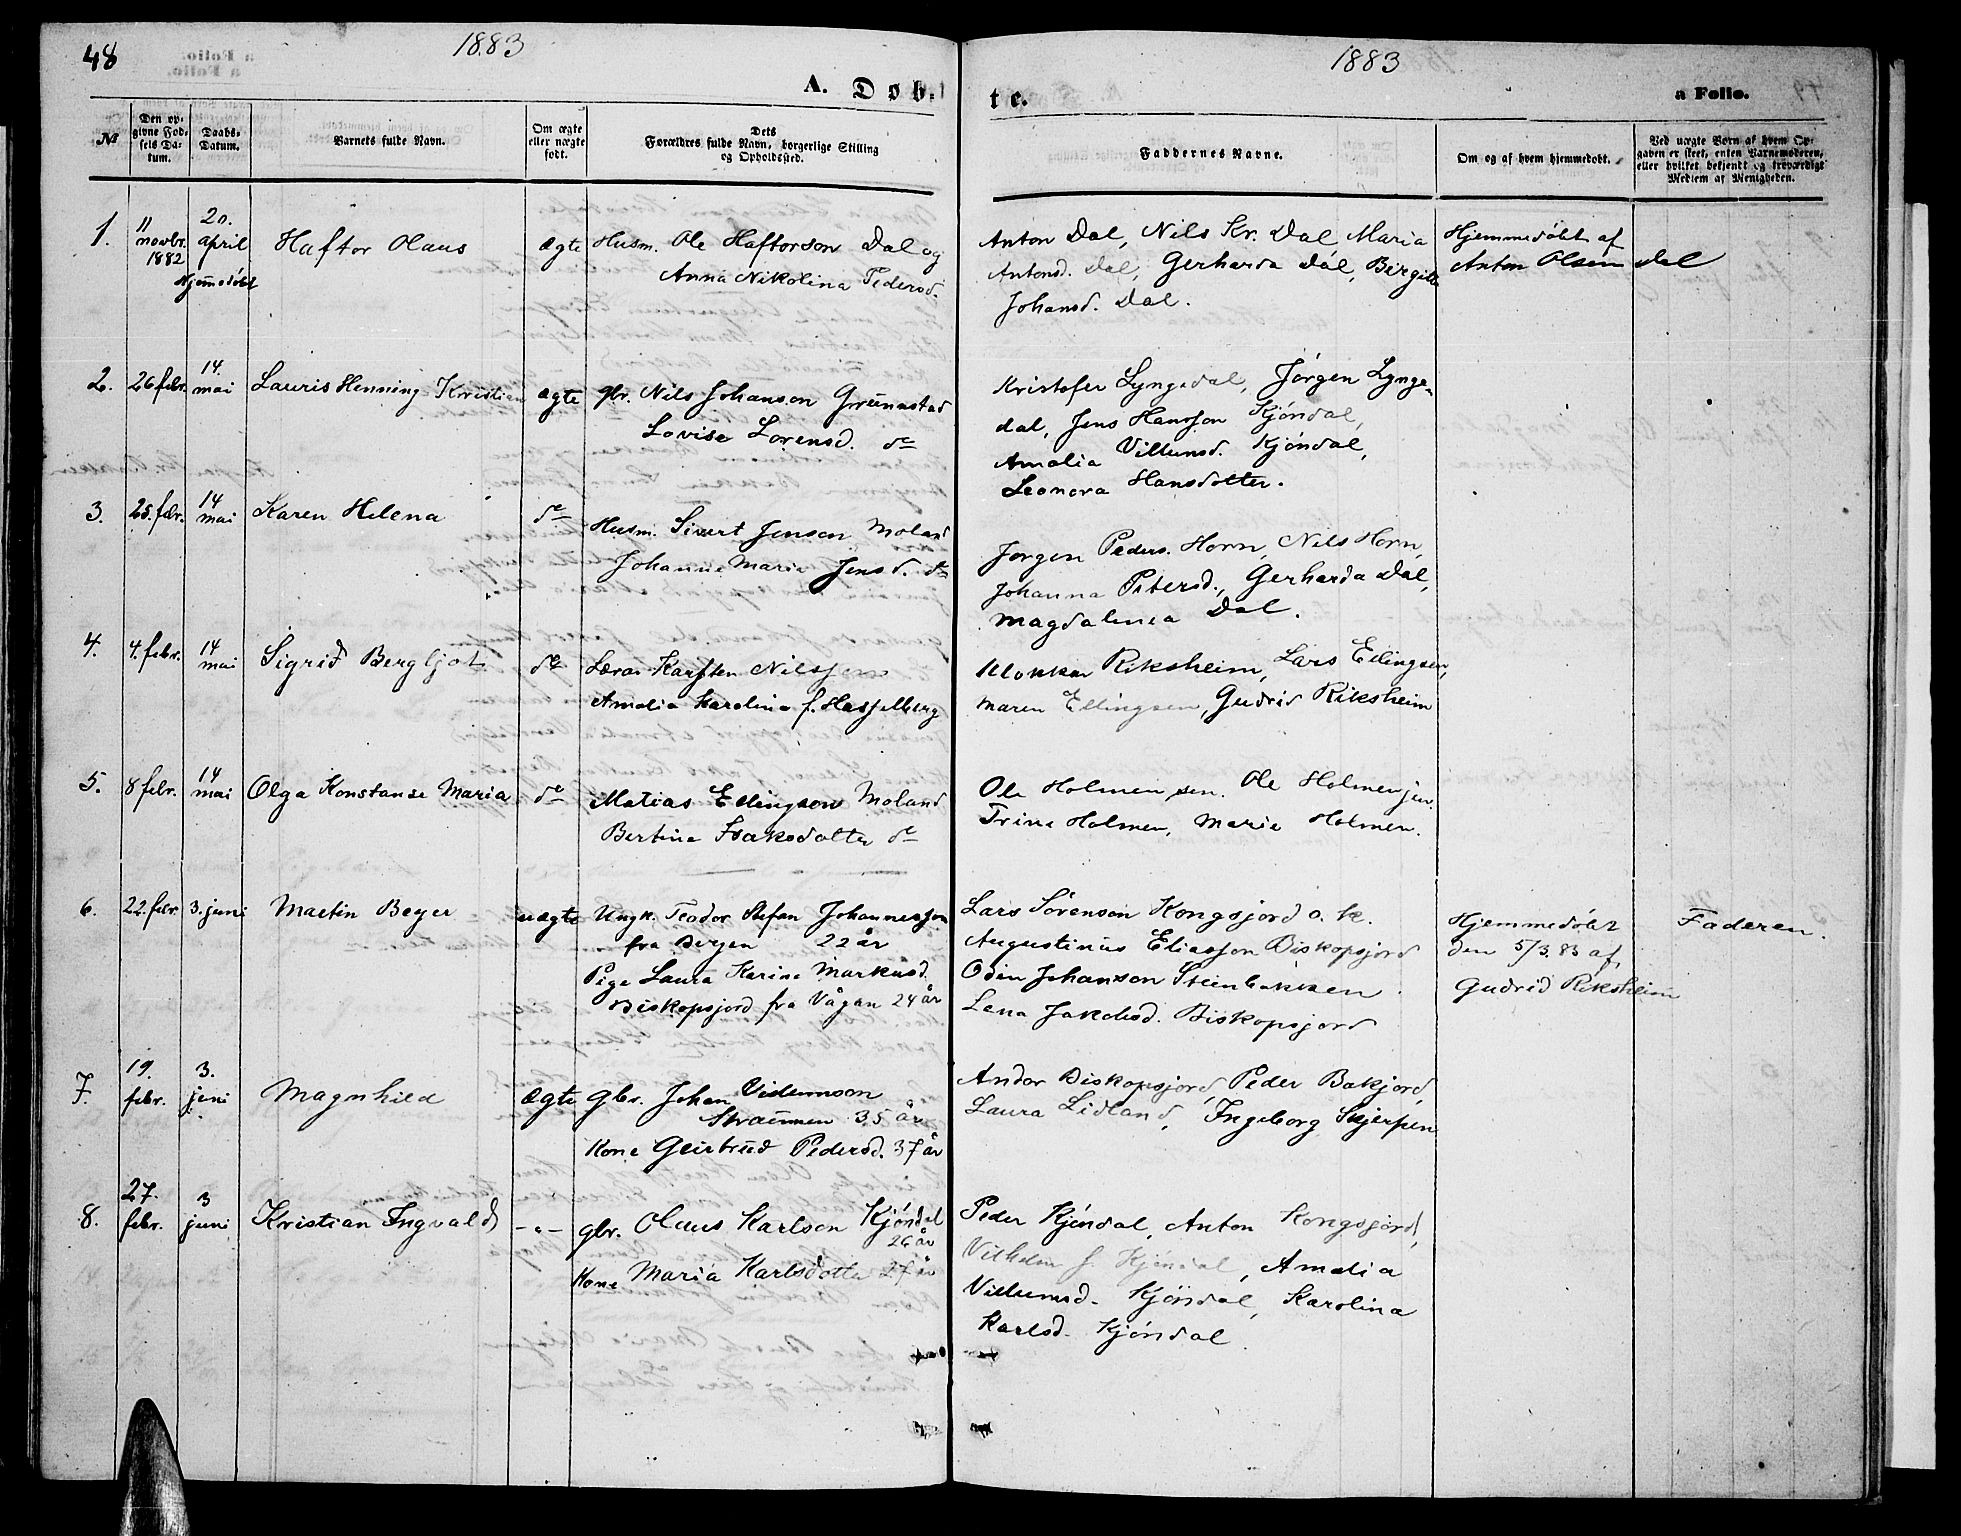 48
1883
1883
A. Døb-
te.
a Folio.
№
Den op-
givne Fød-
sels Da-
tum.
Daabs-
Datum.
Barnets fulde Navn.
Om ægte
eller uægte
født.
Dets
Forældres fulde Navn, borgerlige Stilling
og Opholdssted.
Faddernes Navne.
Om og af hvem hjemmedøbt.
Ved uægte Børn af hvem Op-
gaven er skeet, enten Barnemoderen,
eller hvilket bekjendt og troværdigt
Medlem af Menigheden.
1.
11
novbr.
1882
20.
april
Hjemmedøbt
Haftor Olaus
ægte
Husm. Ole Haftorson Dal og
Anna Nikolina Pedersd.
Anton Dal, Nils Kr. Dal, Maria
Antonsd. Dal, Gerharda Dal, Birgitte
Johansd. Dal.
Hjemmedøbt af
Anton Olsen Dal
2.
26 febr.
14.
mai
Lauris Henning Kristian
ægte
gbr. Nils Johanson Grunnstad
Lovise Lorensd. do
Kristofer Lyngedal, Jørgen Lynge-
dal, Jens Hansson Kjøndal,
Amalia Villumsd. Kjøndal,
Leonora Hansdotter.
3.
25. febr.
14
mai
Karen Helena
do
Husm. Sivert Jenson Moland
Johanna Maria Jensd. do
Jørgen Peders. Horn, Nils Horn,
Johanna Petersd., Gerharda Dal,
Magdalena Dal.
4.
4. febr.
14
mai
Sigrid Bergljot
do
Lærar Karsten Nilssen
Amalia Karolina f. Hasselberg
Klokkar Riksheim, Lars Ellingsen,
Maren Ellingsen, Gudrid Riksheim
5.
8 febr.
14
mai
Olga Konstanse Maria
do
Matias Ellingson Moland
Bertina Isaksdotter do
Ole Holmen sen. Ole Holmen jun.
Trine Holmen, Marie Holmen.
6.
22. febr.
3. juni
Martin Beyer
uægte
Ungk. Teodor Stefan Johannesson
fra Bergen 22 år
Pige Laura Karine Markusd.
Biskopsjord fra Vågan 24 år
Lars Sørenson Kongsjord o. k.
Augustinus Eliasson Biskopsjord
Odin Johanson Steinbakken
Lena Jakobsd. Biskopsjord
Hjemmedøbt
den 5/3.83 af
Gudrid Riksheim
Faderen.
7.
19.
febr.
3.
juni
Magnhild
ægte
gbr. Johan Villumson
Straumen 35 år
Kone Geirtrud Pedersd. 37 år
Andor Biskopsjord, Peder Bakjord,
Laura Lidland, Ingeborg Skjerpen
8.
27.
febr.
3
juni
Kristian Ingvald
-"-
gbr. Olaus Karlson Kjøndal
26 år
Kone Maria Karlsdotter 27 år
Peder Kjøndal, Anton Kongsjord,
Vilhelm f. Kjøndal, Amalia
Villumsd. Kjøndal, Karolina
Karlsd. Kjøndal.